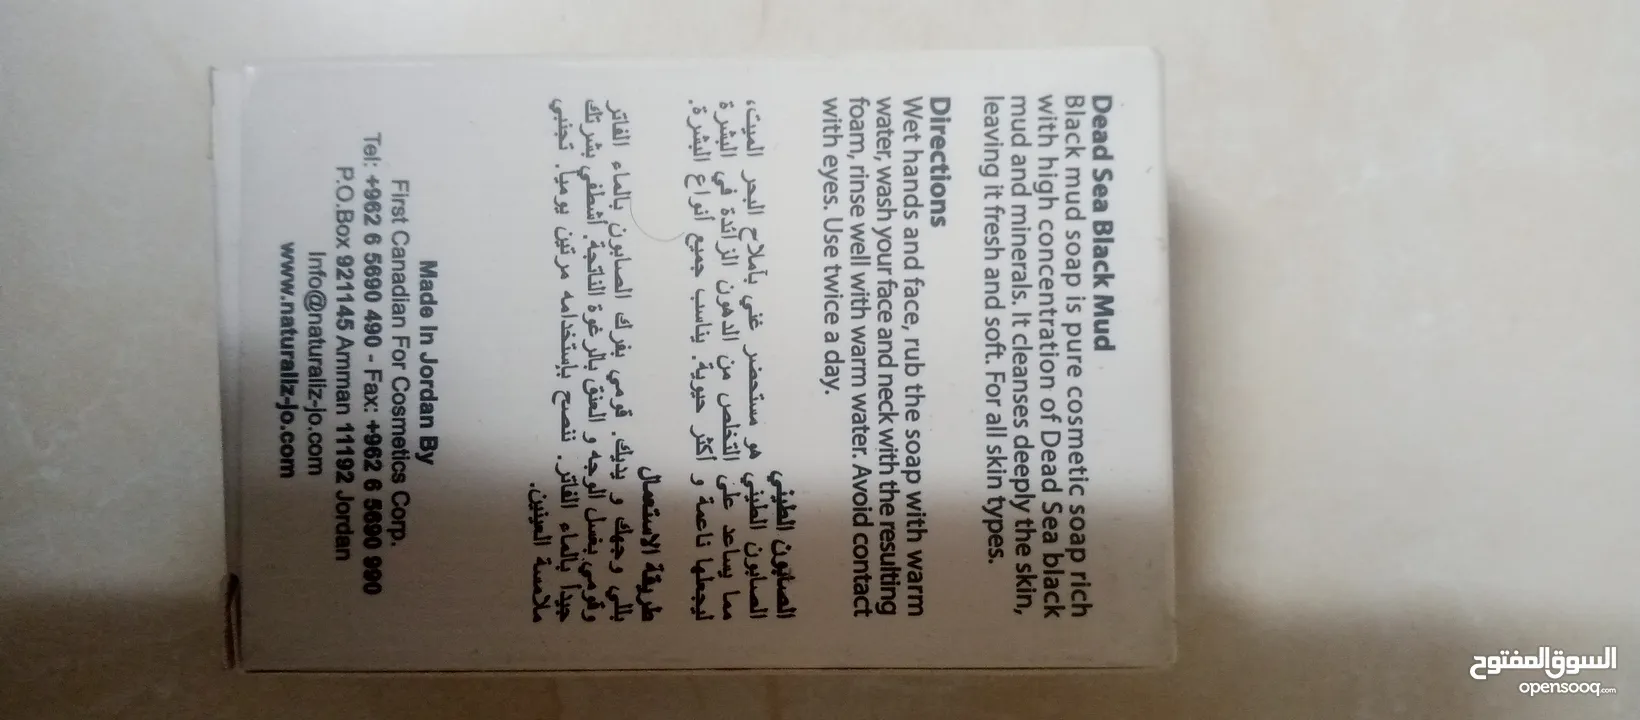 Dead Sea Black Mud
Black mud soap is pure cosmetic soap rich
with high concentration of Dead Sea black
mud and minerals. It cleanses deeply the skin,
leaving it fresh and soft. For all skin types.
Directions
Wet hands and face, rub the soap with warm
water, wash your face and neck with the resulting
foam, rinse well with warm water. Avoid contact
with eyes. Use twice a day.
الصابون الطيني
الصابون الطيني هو مستحضر غني بآملاح البحر الميت،
مما يساعد على التخلص من الدهون الزائدة في البشرة
ليجعلها ناعمة و أكثر حيوية. يناسب جميع أنواع البشرة.
طريقة الاستعمال
بللي وجهك و يديك. قومي بفرك الصابون بالماء الفاتر
وقومي بغسل الوجه و العنق بالرغوة الناتجة. أشطفي بشرتك
جيداً بالماء الفاتر. ننصح بإستخدامه مرتين يومياً. تجنبي
ملامسة العينين.
Made In Jordan By
First Canadian For Cosmetics Corp.
Tel: +962 6 5690 490 - Fax: +962 6 5690 990
P.O.Box 921145 Amman 11192 Jordan
Info@naturaliz-jo.com
www.naturaliz-jo.com
السوق المفتوح
opensooq.com